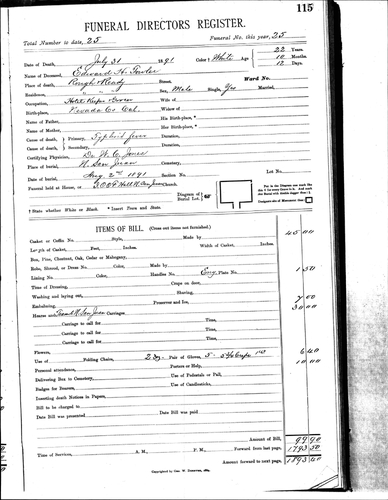 115
FUNERAL DIRECTORS REGISTER.
Total Number to date, 25 Funeral No. this year, 25
Date of Death, July 31 1891 Color † White Age 22 Years.
Name of Deceased, Edward H. 10 Months.
Place of death, Rough & Ready Street. Ward No. 12 Days.
Residence, " " " Sex, Male Single, Yes Married,
Occupation, Hotel Keeper Wife of
Birth-place, Nevada Co Cal. Widow of
Name of Father, His Birth-place, *
Name of Mother, Her Birth-place, *
Cause of death, Primary, Typhoid fever Duration,
Cause of death, Secondary, Duration,
Certifying Physician, Dr. W. C. Jones
Place of burial, N. San Juan Cemetery,
Date of burial, Aug. 2nd 1891 Section No. Lot No.
Funeral held at House, or
Diagram of Burial Lot.
† State whether White or Black. * Insert Town and State.
ITEMS OF BILL. (Cross out items not furnished.)
Casket or Coffin No. Style, Made, 45 00
Length of Casket, Feet, Inches. Width of Casket, Inches.
Box, Pine, Chestnut, Oak, Cedar or Mahogany,
Robe, Shroud, or Dress No. Color, Made,
Lining No. Color, Handles No. Eng. Plate No. 1 50
Time of Dressing, Crape on door,
Washing and laying out, Shaving,
Embalming, Preserve and Ice, 7 00
Hearse and Carriages. 30 00
Carriage to call for Time,
Carriage to call for Time,
Carriage to call for Time,
Flowers, 6 40
Use of Folding Chairs, 2 Dz. Pair of Gloves, 10 00
Personal attendance, Posture or Holy,
Delivering Box to Cemetery, Use of Pedestals or Pall,
Badges for Bearers, Use of Candlesticks,
Inserting death Notices in Papers,
Bill to be charged to
Date Bill was presented Date Bill was paid
Amount of Bill, 99 90
Time of Services, A. M., P. M., Forward from last page, 1793 50
Amount forward to next page, 1893 40
Copyrighted by Geo. W.